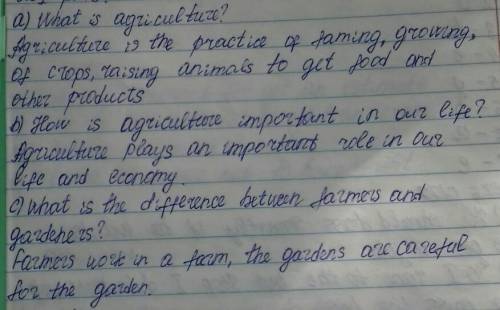 a) What is agriculture?
Agriculture is the practice of faming, growing,
of crops, raising animals to get food and
other products
b) How is agriculture important in our life?
Agriculture plays an important role in our
life and economy.
c) What is the difference between farmers and
gardeners?
Farmers work in a farm, the gardens are careful
for the garden.